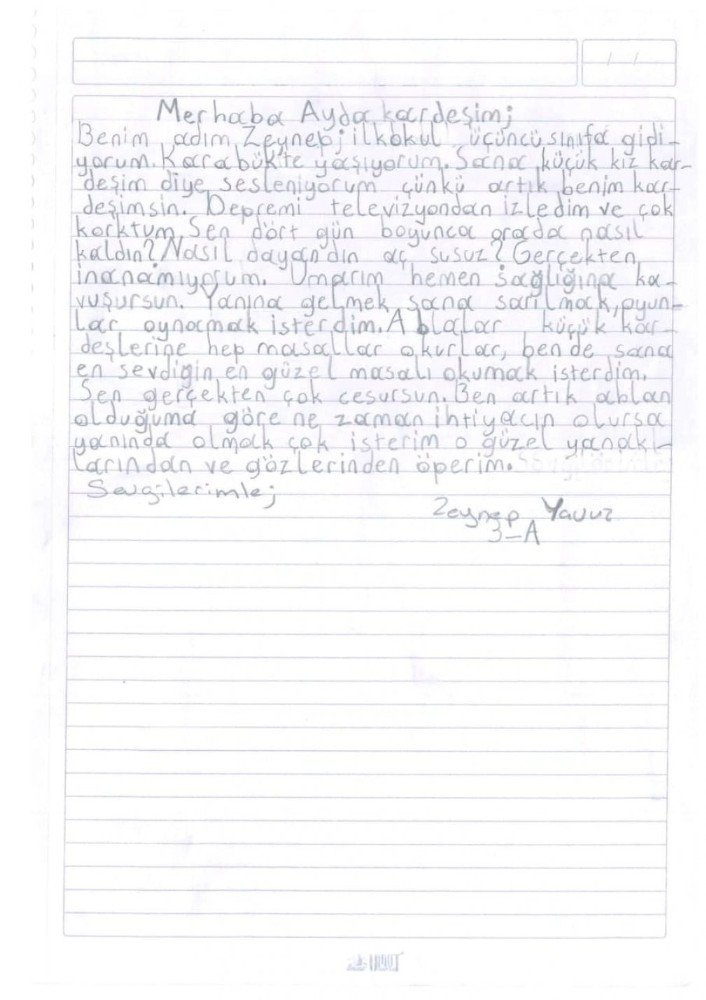 Merhaba Ayda kardeşim;
Benim adım Zeynep; ilkokul üçüncü sınıfa gidi-
yorum. Karabükte yaşıyorum. Sana küçük kız kar-
deşim diye sesleniyorum çünkü artık benim kar-
deşimsin. Depremi televizyondan izledim ve çok
korktum. Sen dört gün boyunca orada nasıl
kaldın? Nasıl dayandın aç susuz? Gerçekten
inanamıyorum. Umarım hemen sağlığına ka-
vuşursun. Yanına gelmek, sana sarılmak, oyun-
lar oynamak isterdim. Ablalar küçük kar-
deşlerine hep masallar okurlar, ben de sana
en sevdiğin en güzel masalı okumak isterdim.
Sen gerçekten çok cesursun. Ben artık ablan
olduğuma göre ne zaman ihtiyacın olursa
yanında olmak çok isterim o güzel yanak-
larından ve gözlerinden öperim.
Sevgilerimle;
Zeynep Yavuz
3-A